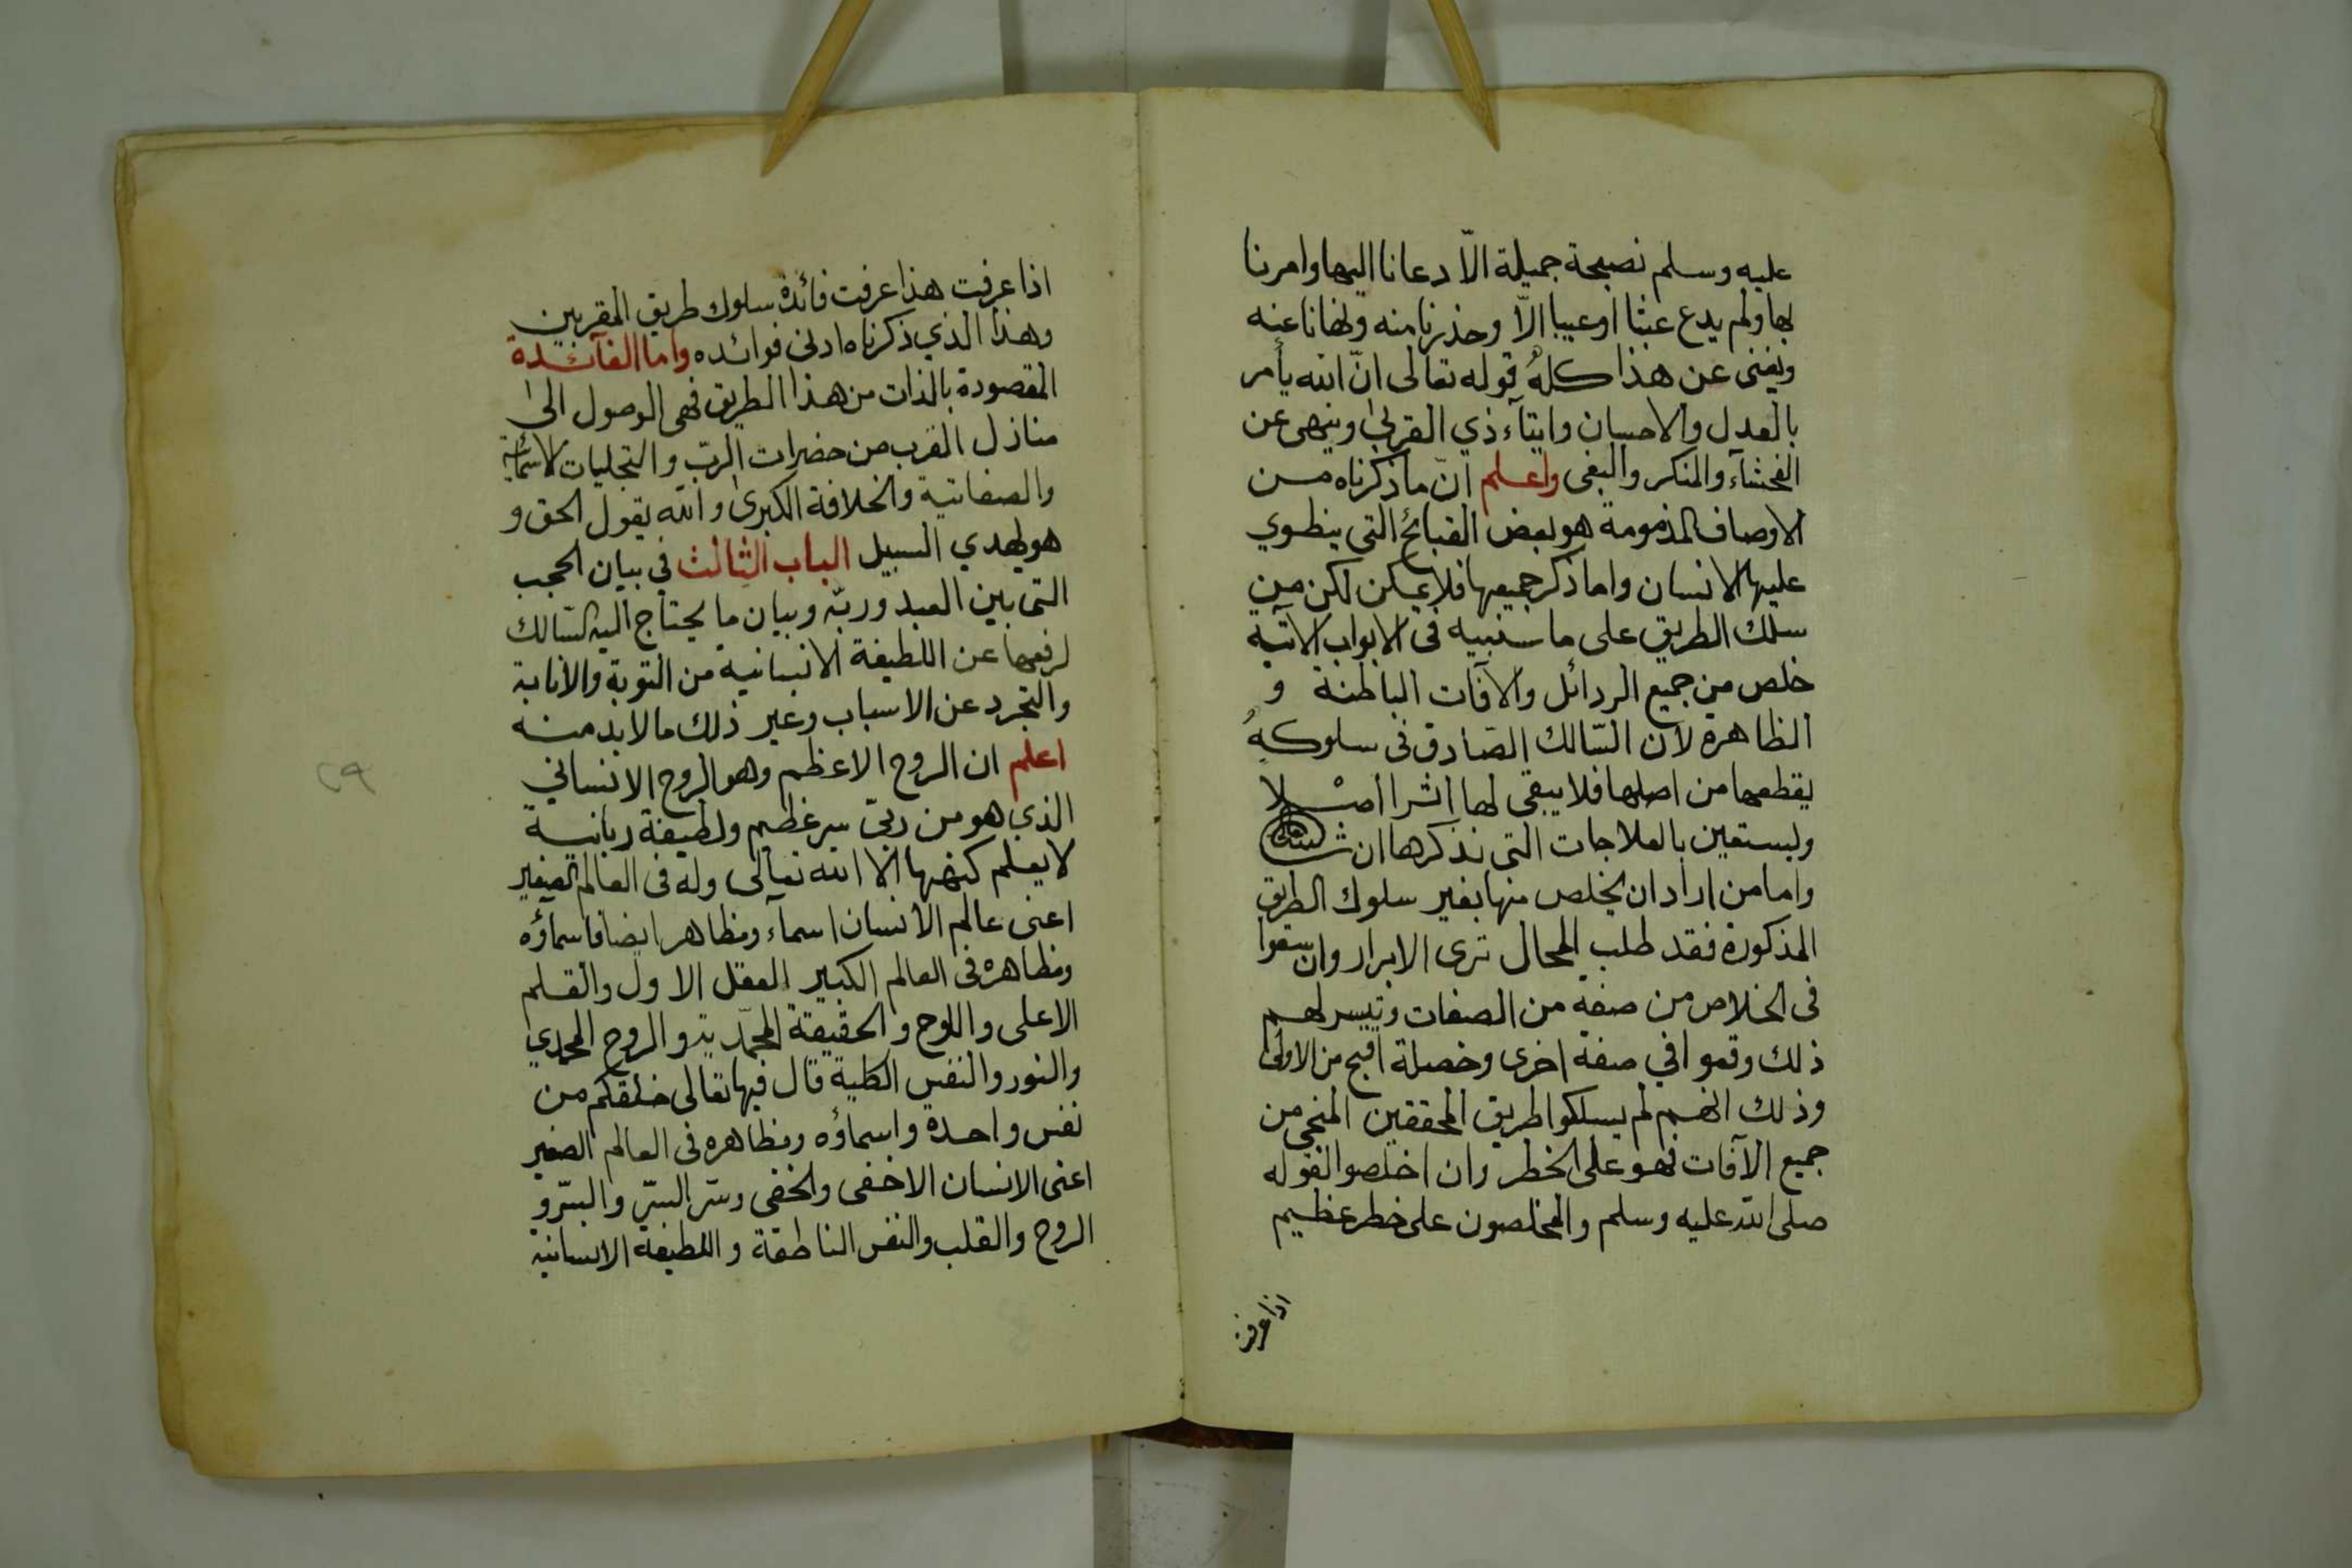 عليه وسلم نصيحة جميلة الّا دعانا اليها وامرنا
بها ولم يدع عبثا او عيبا الّا وحذرنا منه ونهانا عنه
ويغنى عن هذا كلهُ قوله تعالى انّ الله يأمر
بالعدل والاحسان وايتآء ذي القربىٰ وينهى عن
الفحشآء والمنكر والبغى واعلم انّ ما ذكرناه من
الاوصاف المذمومة هو بعض القبائح التى ينطوي
عليها الانسان واما ذكر جميعها فلا يمكن لكن من
سلك الطريق على ما سنبيه فى الابواب الاتية
خلص من جميع الردائل والآفات الباطنة و
الظاهرة لان السّالك الصّادق فى سلوكهِ
يقطعها من اصلها فلا يبقى لها اثرا اصْلا
وليستعين بالعلاجات التى نذكرها ان شاء الله تعالى
واما من اراد ان يخلص منها بغير سلوك الطريق
المذكورة فقد طلب المحال ترى الابرار وان سعوا
فى الخلاص من صفة من الصفات وتيسر لهم
ذلك وقعوا في صفة اخرى وخصلة اقبح من الاولى
وذلك انهم لم يسلكوا طريق المحققين المنجى من
جميع الآفات فهو على الخطر وان اخلصوا لقوله
صلى الله عليه وسلم والمخلصون على خطر عظيم
اذا عرفت
اذا عرفت هذا عرفت فائدة سلوك طريق المقربين
وهذا الذي ذكرناه ادنى فوائده واما الفآئدة
المقصودة بالذات من هذا الطريق فهى الوصول الىٰ
منازل القرب من حضرات الربّ والتجليات الاسمائية
والصفاتية والخلافة الكبرىٰ والله يقول الحق و
هو يهدي السبيل الباب الثالث في بيان الحجب
التى بين العبد وربّه وبيان ما يحتاج اليه السّالك
لرفعها عن اللطيفة الانسانية من التوبة والانابة
والتجرد عن الاسباب وغير ذلك ما لا بد منه
اعلم ان الروح الاعظم وهو الروح الانساني
الذي هو من ربّى سر عظيم ولطيفة ربانية
لا يعلم كنهها الا الله تعالى وله فى العالم الصغير
اعنى عالم الانسان اسمآء ومظاهر ايضا فاسمآؤه
ومظاهره فى العالم الكبير العقل الاول والقلم
الاعلى واللوح والحقيقة المحمّدية والروح المحمدي
والنور والنفس الكلية قال فيها تعالى خلقكم من
نفس واحدة واسماؤه ومظاهره فى العالم الصغير
اعنى الانسان الاخفى والخفى وسّر السّر والسّر و
الروح والقلب والنفس الناطقة واللطيفة الانسانية
٢٩